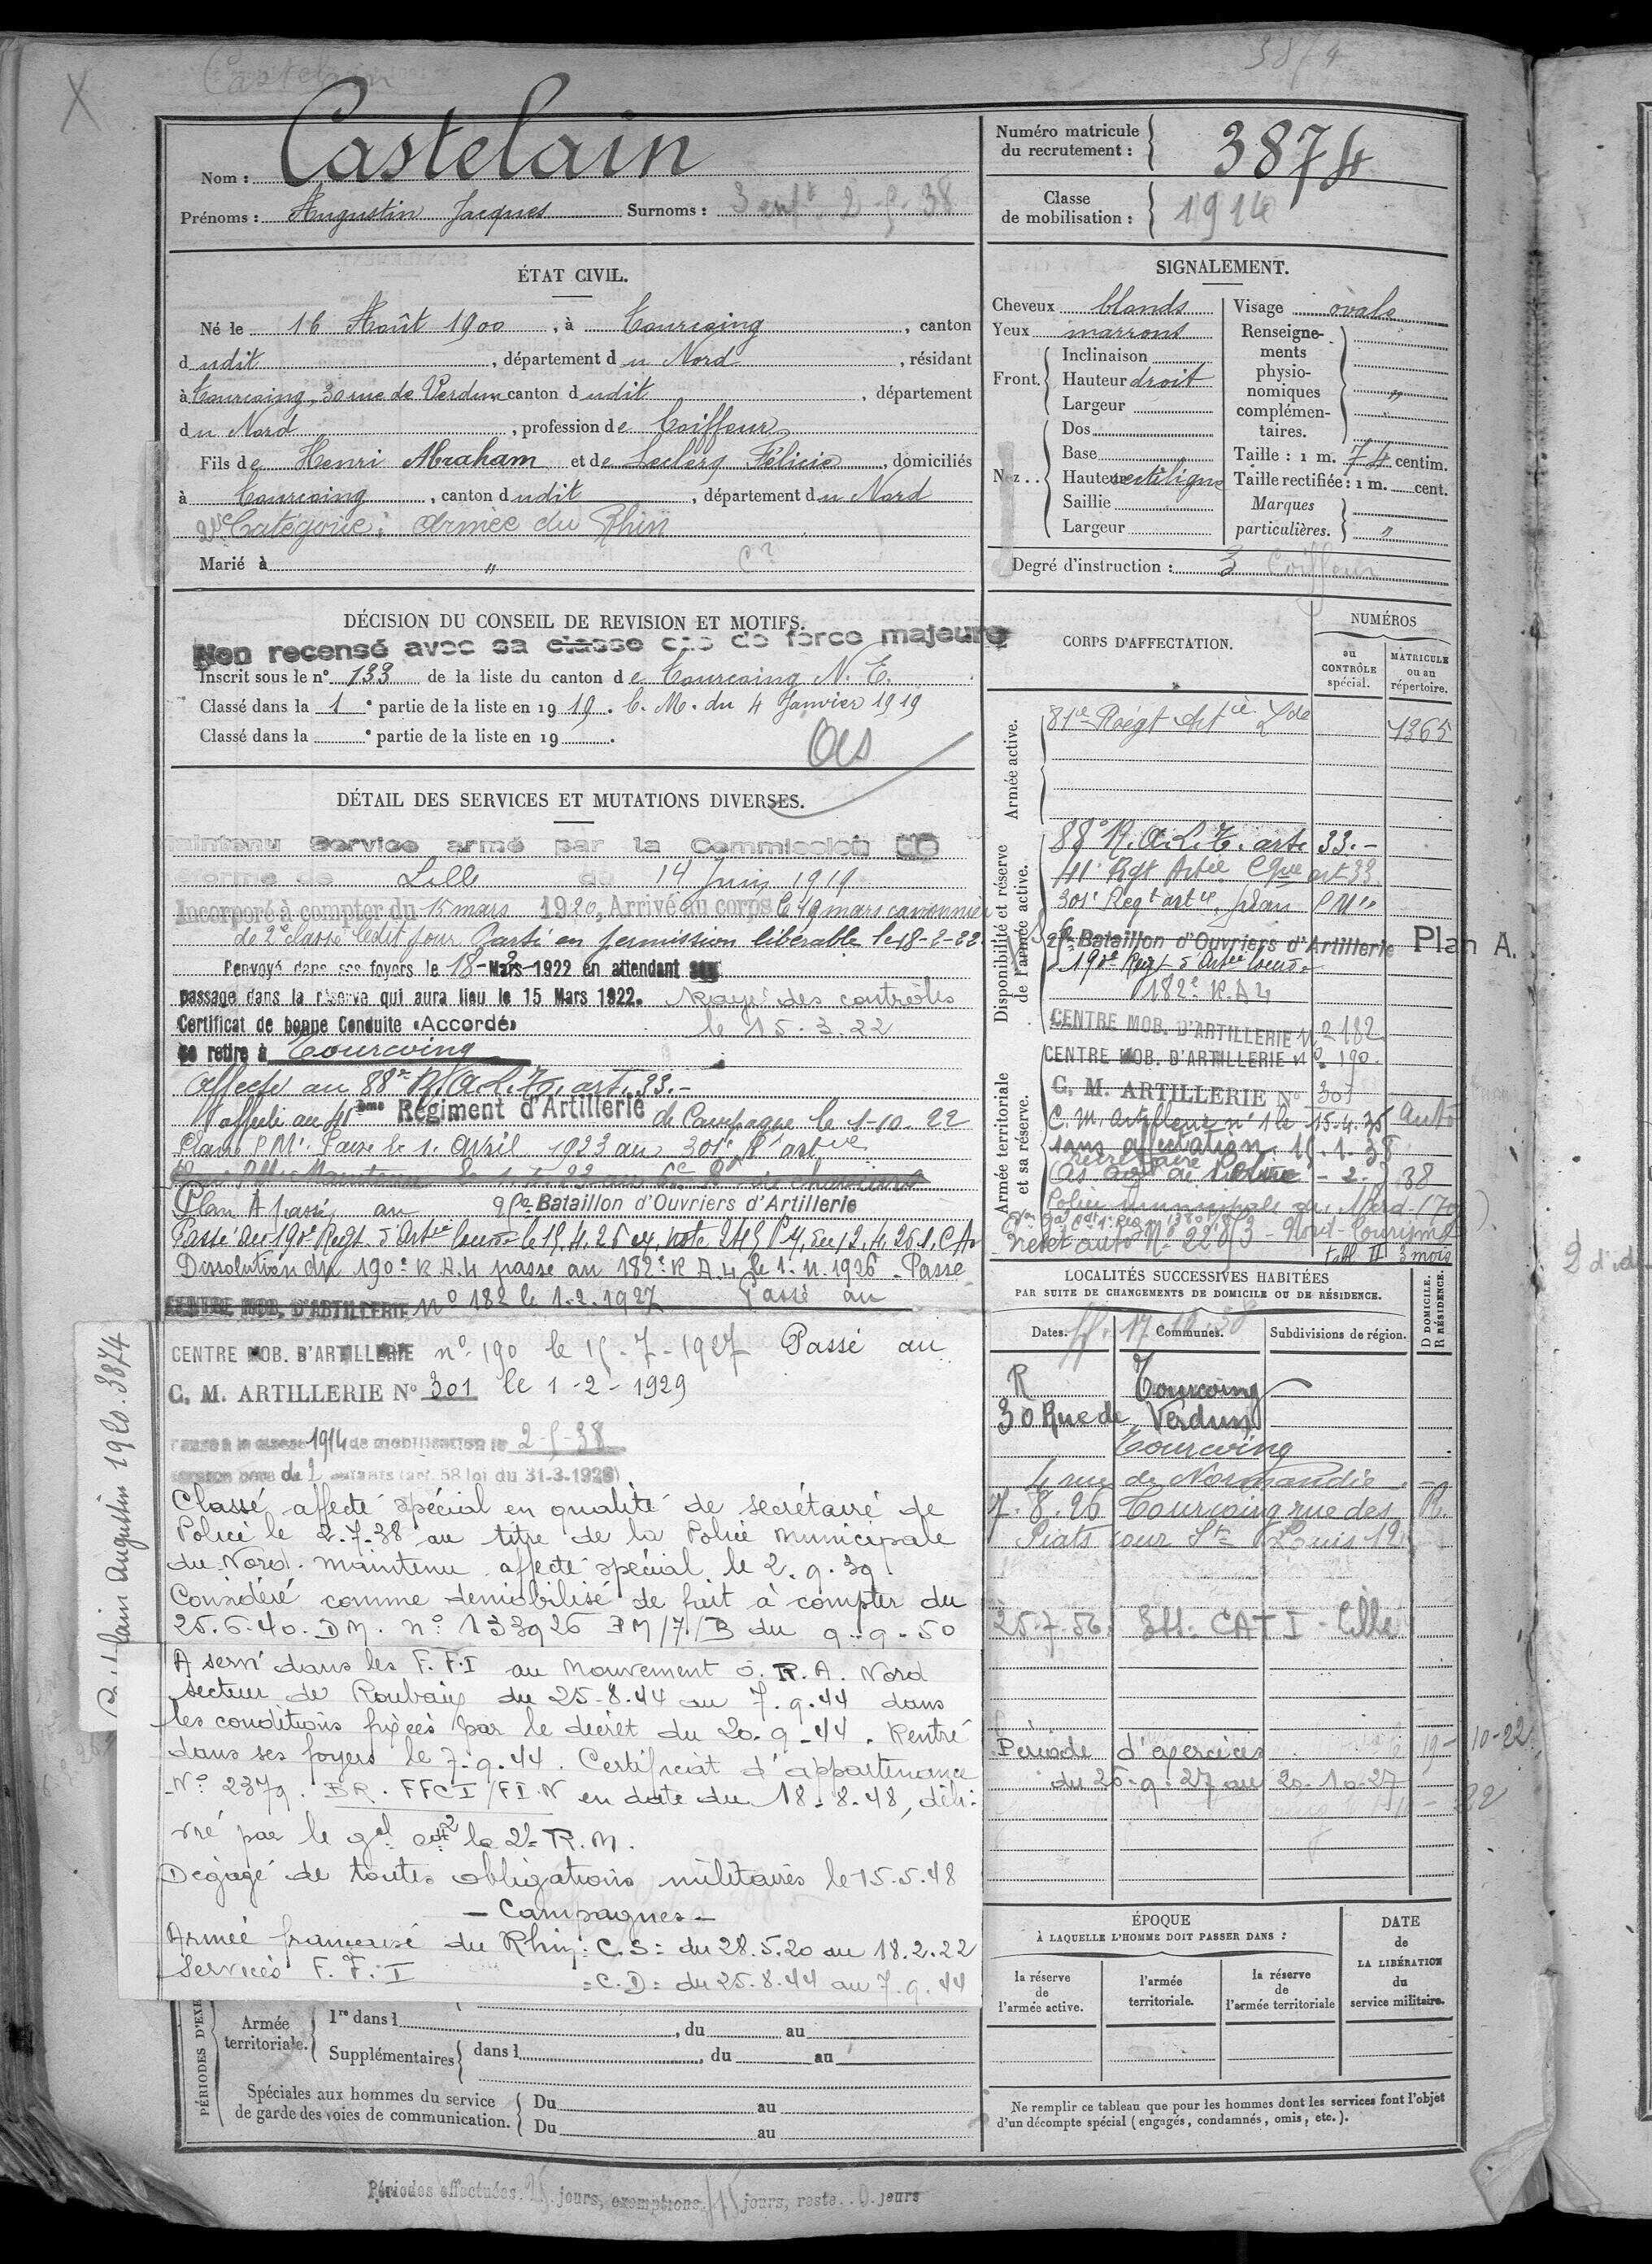 Castelain
3874
X
Nom : Castelain
Prénoms : Augustin Jacques Surnoms : 3 enfts 2-5-38
Numéro matricule du recrutement : 3874
Classe de mobilisation : 1914
ÉTAT CIVIL.
Né le 16 Août 1900, à Tourcoing, canton
dudit, département du Nord, résidant
à Tourcoing, 30 rue de Verdun canton dudit, département
du Nord, profession de Coiffeur
Fils de Henri Abraham et de Leclerq Félicie, domiciliés
à Tourcoing, canton dudit, département du Nord
2e Catégorie : Armée du Rhin
Marié à "
SIGNALEMENT.
Cheveux blonds
Yeux marrons
Front. Inclinaison
Hauteur droit
Largeur
Nez.. Dos
Base
Hauteur rectiligne
Saillie
Largeur
Visage ovale
Renseignements physionomiques complémentaires. "
Taille : 1 m. 74 centim.
Taille rectifiée : 1 m. cent.
Marques particulières. "
Degré d'instruction : 3 Coiffeur
DÉCISION DU CONSEIL DE REVISION ET MOTIFS.
Non recensé avec sa classe cas de force majeure
Inscrit sous le n° 133 de la liste du canton de Tourcoing N. E.
Classé dans la 1e partie de la liste en 1919. C. M. du 4 Janvier 1919
Classé dans la e partie de la liste en 19 .
DÉTAIL DES SERVICES ET MUTATIONS DIVERSES.
Maintenu Service armé par la Commission de
réforme de Lille du 14 Juin 1919
Incorporé à compter du 15 mars 1920, Arrivé au corps le 19 mars canonnier
de 2e classe ledit jour Parti en permission libérable le 18-2-22
Renvoyé dans ses foyers le 18-Mars-1922 en attendant son
passage dans la réserve qui aura lieu le 15 Mars 1922. Rayé des contrôles
Certificat de bonne Conduite «Accordé» le 15.3.22
se retire à Tourcoing
Affecté au 88e R.A.L.T. art. 33.-
Affecté au 41ème Régiment d'Artillerie de Campagne le 1-10-22
Plan P Mre Passé le 1. Avril 1923 au 301e Rt artie
Plan A passé au 2e Bataillon d'Ouvriers d'Artillerie
Passé au 190e Regt d'Artie lourde le 15.4.26
Dissolution du 190e R A.L passe au 182e R A.L le 1.11.1926. Passe
CENTRE MOB. D'ARTILLERIE N° 182 le 1-2-1927 Passé au
CENTRE MOB. D'ARTILLERIE n° 190 le 15-7-1927 Passé au
C. M. ARTILLERIE N° 301 le 1-2-1929
Passé à la classe 1914 de mobilisation le 2-5-38
comme père de 2 enfants (art. 58 loi du 31-3-1928)
Classé affecté spécial en qualité de secrétaire de
Police le 2.7.38 au titre de la Police Municipale
du Nord. Maintenu affecté spécial le 2.9.39.
Considéré comme démobilisé de fait à compter du
25.6.40. DM. n° 133926 PM/7/B du 9-9-50
A servi dans les F.F.I au Mouvement O.R.A. Nord
secteur de Roubaix du 25-8.44 au 7.9.44 dans
les conditions fixées par le décret du 20-9-44. Rentré
dans ses foyers le 7-9.44. Certificat d'appartenance
N° 2379. BR. FFCI/FI.N en date du 18-8-48, déli-
vré par le gal cdt la 2e R.M.
Dégagé de toutes obligations militaires le 15.5.48
- Campagnes -
Armée française du Rhin : C.S : du 28.5.20 au 18.2.22
Services F.F.I = C.D : du 25.8.44 au 7.9.44
lain Augustin 1920.3874
CORPS D'AFFECTATION.
NUMÉROS
au CONTRÔLE spécial.
MATRICULE ou au répertoire.
Armée active.
81e Régt Artie Lde 1365
Disponibilité et réserve de l'armée active.
88e R.A.L.T. art. 33.-
41e Rgt Artie Cgne art 33
301e Regt artie, plan P Mre
2e Bataillon d'Ouvriers d'Artillerie Plan A.
190e Regt d'Artie lourde
182e R.A L
CENTRE MOB. D'ARTILLERIE N° 182
Armée territoriale et sa réserve.
CENTRE MOB. D'ARTILLERIE N° 190.
C. M. ARTILLERIE N° 301
C.M. Artillerie n° 1 le 15.4.35 Auto
sans affectation. 15.1.38
Police municipale du Nord
Tabl II 3 mois
LOCALITÉS SUCCESSIVES HABITÉES
PAR SUITE DE CHANGEMENTS DE DOMICILE OU DE RÉSIDENCE.
Dates. Communes. Subdivisions de région. D DOMICILE. R RÉSIDENCE.
R Tourcoing
30 Rue de Verdun
Tourcoing
4 rue de Normandie
7.8.26 Tourcoing rue des R.
Piats cour St Louis 12
25-7-56: CATI - Lille
Période d'exercices
du 26-9-27 au 20-10-27
10-22
ÉPOQUE
À LAQUELLE L'HOMME DOIT PASSER DANS :
la réserve de l'armée active.
l'armée territoriale.
la réserve de l'armée territoriale
DATE de LA LIBÉRATION du service militaire.
Ne remplir ce tableau que pour les hommes dont les services font l'objet
d'un décompte spécial (engagés, condamnés, omis, etc.).
PÉRIODES D'EXE
Armée territoriale. 1re dans l , du au
Supplémentaires dans l , du au
Spéciales aux hommes du service
de garde des voies de communication. Du au
Du au
Périodes effectuées. 25 jours, exemptions. 15 jours, reste. 0. jours